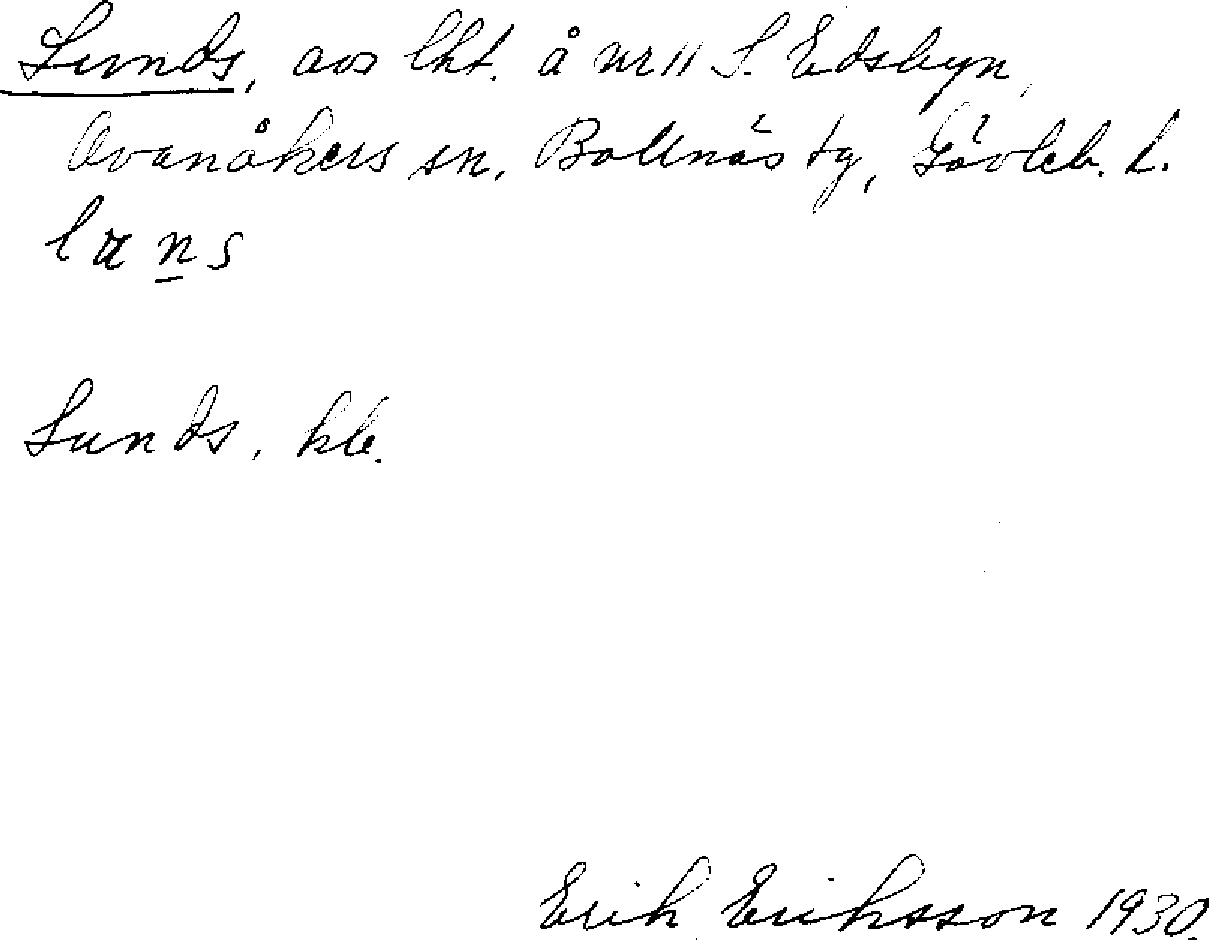 Lunds, avs lht. å nr 11 S. Edsbyn,
Ovanåkers sn, Bollnäs tg, Gävleb. L.
Lunds, kb.
Erik Eriksson 1930.